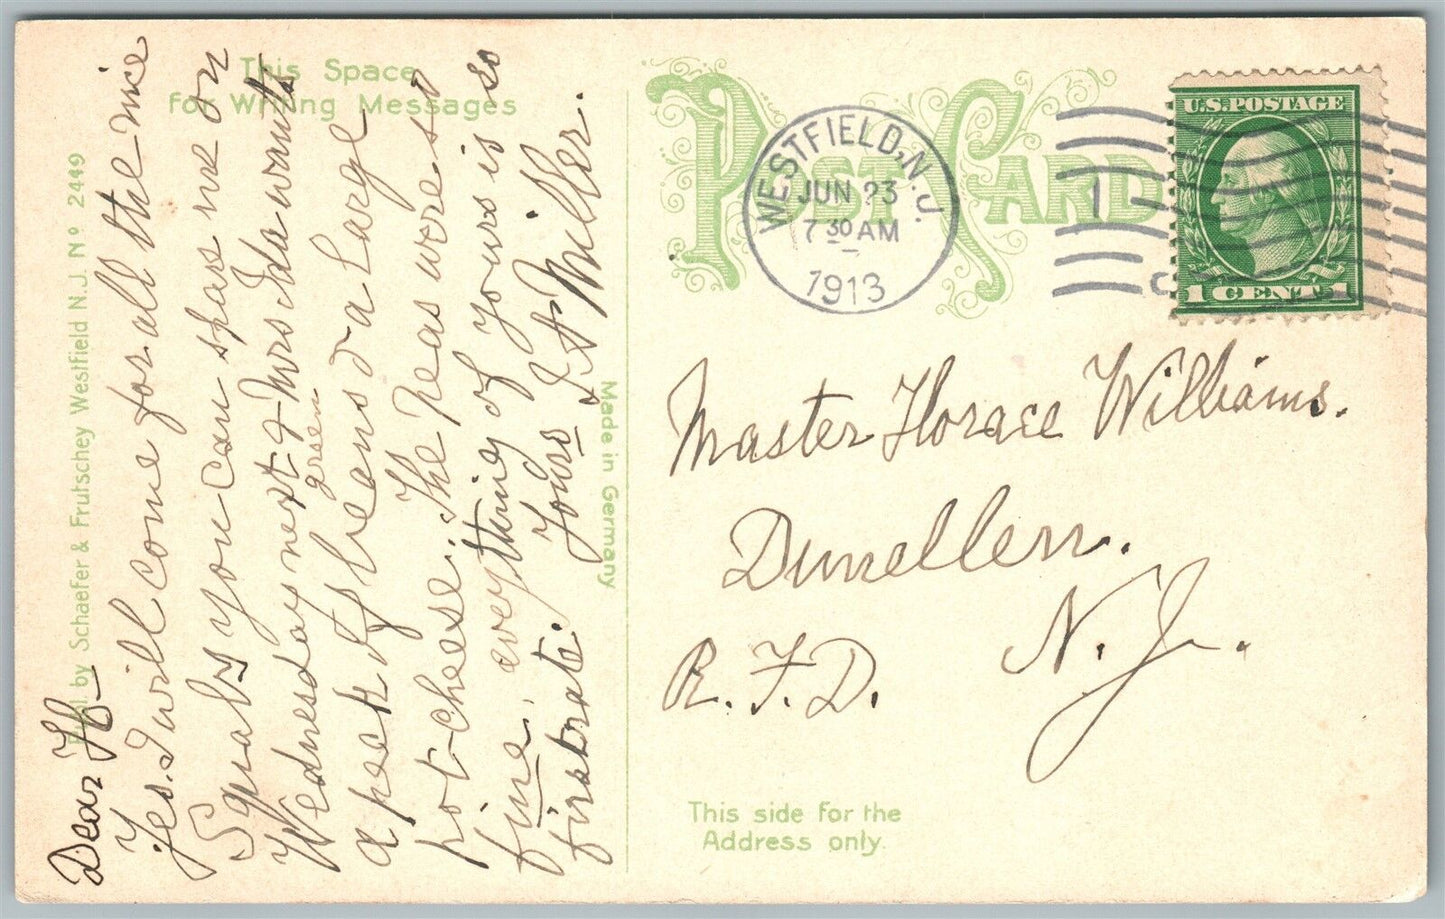 This Space
For Writing Messages
Publ. by Schaefer & Frutschey Westfield N.J. Nº 2449
Dear H—
Yes. I will come for all the nice
Squabs you can spare me on
Wednesday next & Mrs Ida wants
green
a peck of beans & a large
pot-cheese. The Peas were so
fine. everything of yours is so
firstrate. Yours I A Miller.
Made in Germany
POST CARD
WESTFIELD, N.J.
JUN 23
7 30 AM
1913
1
U.S. POSTAGE
1 CENT 1
Master Horace Williams.
Dunellen.
N. J.
R. F. D.
This side for the
Address only.